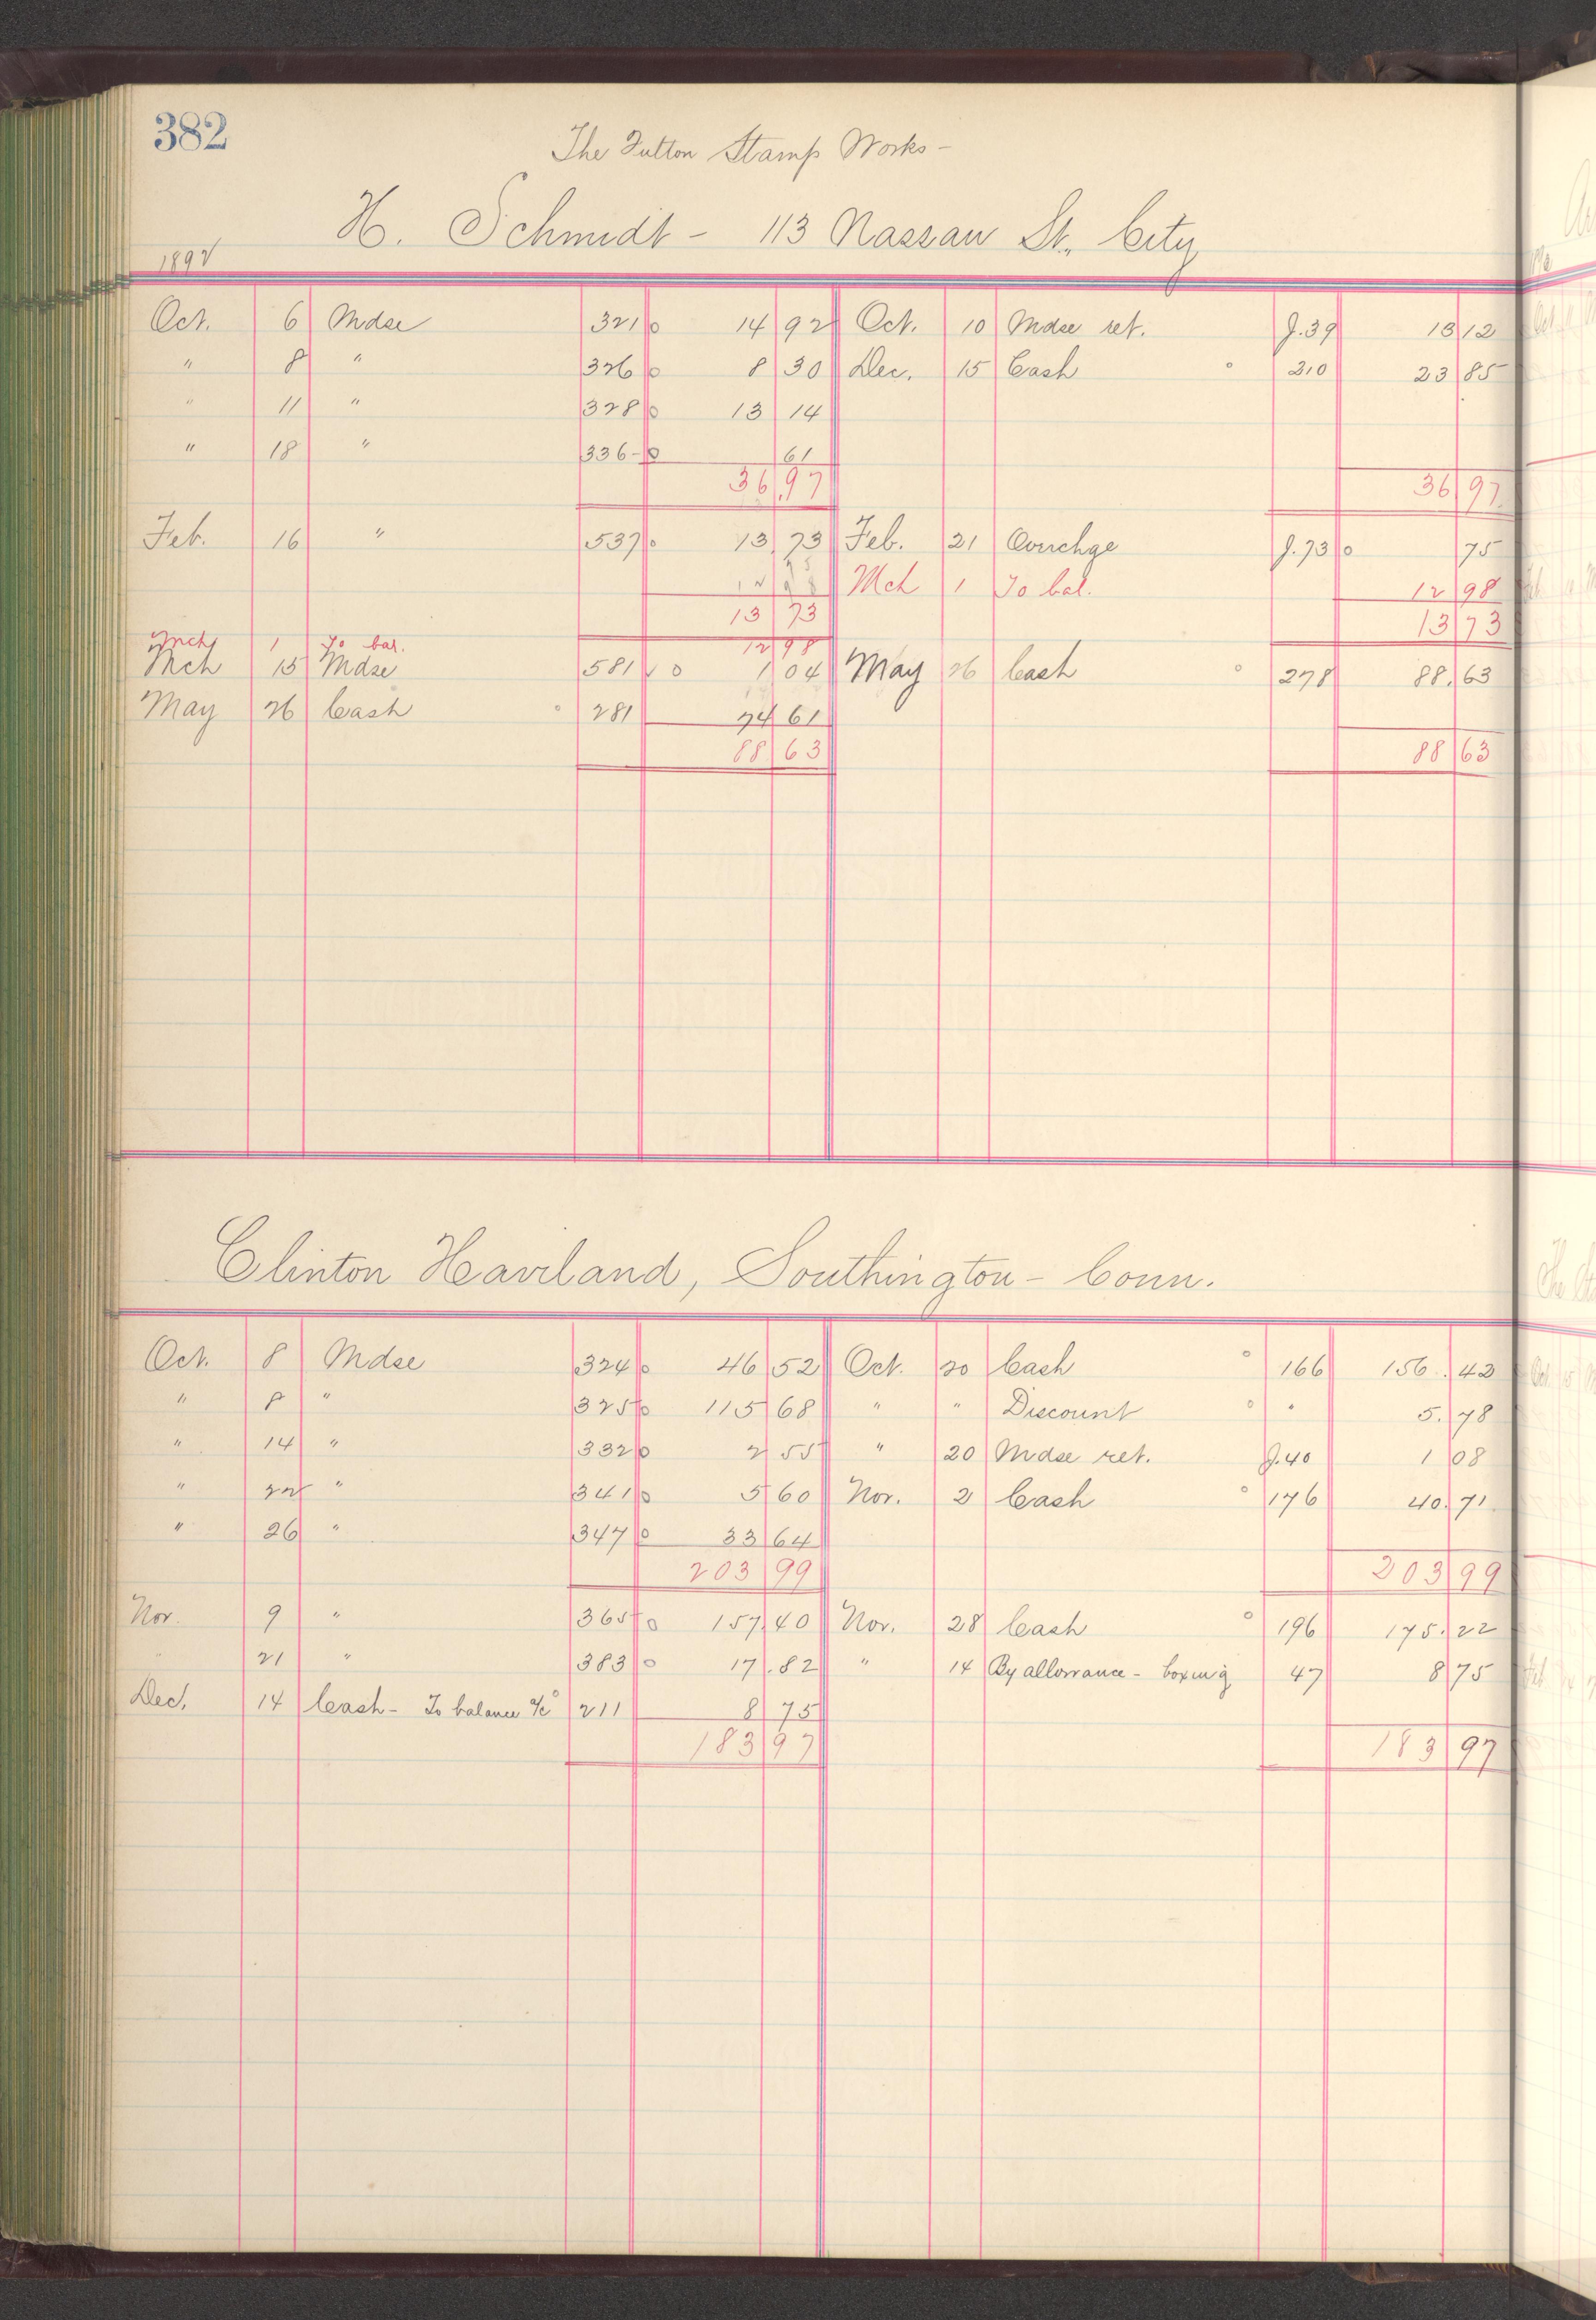 382
The Fulton Stamp Works -
H. Schmidt - 113 Nassau St. City
1892
Oct. 6 Mdse 321 0 14 92 Oct. 10 Mdse ret. J.39 13 12
" 8 " 326 0 8 30 Dec. 15 Cash 210 23 85
" 11 " 328 0 13 14
" 18 " 336 - 0 61
36 97 36 97
Feb. 16 " 537 0 13 73 Feb. 21 Overchge J.73 0 75
Mch 1 To bal. 12 98
13 73 13 73
Mch 1 To bal. 12 98
Mch 15 Mdse 581 0 1 04 May 26 Cash 278 88 63
May 26 Cash 281 74 61
88 63 88 63
Clinton Haviland, Southington - Conn.
Oct. 8 Mdse 324 0 46 52 Oct. 20 Cash 166 156 42
" 8 " 325 0 115 68 " " Discount " 5 78
" 14 " 332 0 2 55 " 20 Mdse ret. J.40 1 08
" 22 " 341 0 5 60 Nov. 2 Cash 176 40 71
" 26 " 347 0 33 64
203 99 203 99
Nov. 9 " 365 0 157 40 Nov. 28 Cash 196 175.22
" 21 " 383 0 17.82 " 14 By allowance - boxing 47 8 75
Dec. 14 Cash - To balance a/c 211 8 75
183 97 183 97